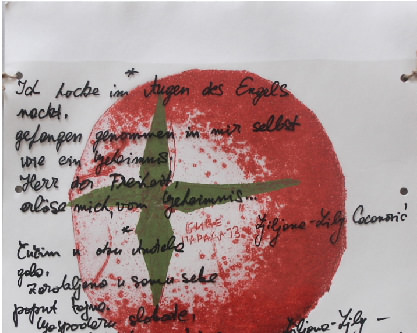 *
Ich hocke im Augen des Engels
nackt,
gefangen genommen in mir selbst
wie ein Geheimnis.
Herr der Freiheit,
erlöse mich vom Geheimnis...
Ljiljana-Lily
*
Čučim u oku anđela
gola,
zarobljena u samu sebe
poput tajne.
Gospodaru slobode,
Ljiljana-Lily -